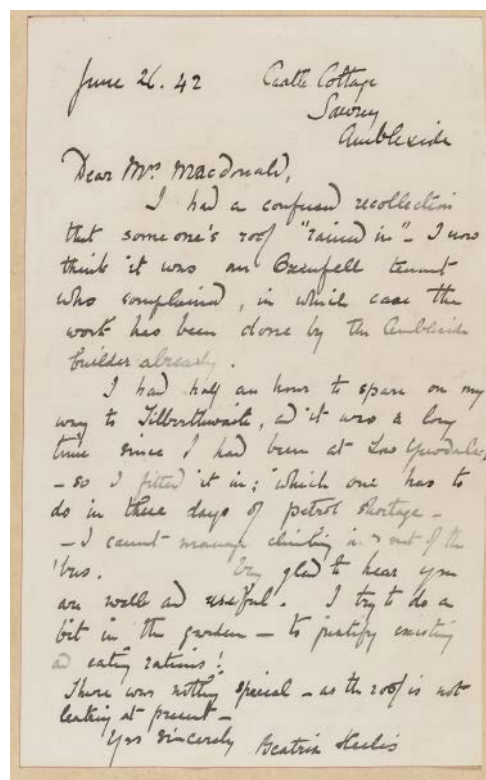 June 26. 42 Castle Cottage
Sawrey
Ambleside
Dear Mrs Macdonald,
I had a confused recollection
that someone's roof "rained in" - I now
think it was an Oxenfell tenant
who complained, in which case the
work has been done by the Ambleside
builder already.
I had half an hour to spare on my
way to Tilberthwaite, and it was a long
time since I had been at Low Yewdale,
- so I fitted it in; which one has to
do in these days of petrol shortage -
- I cannot manage climbing in & out of the
'bus. Very glad to hear you
are well and useful. I try to do a
bit in the garden - to justify existing
and eating rations!
There was nothing special - as the roof is not
leaking at present -
Yrs sincerely Beatrix Heelis